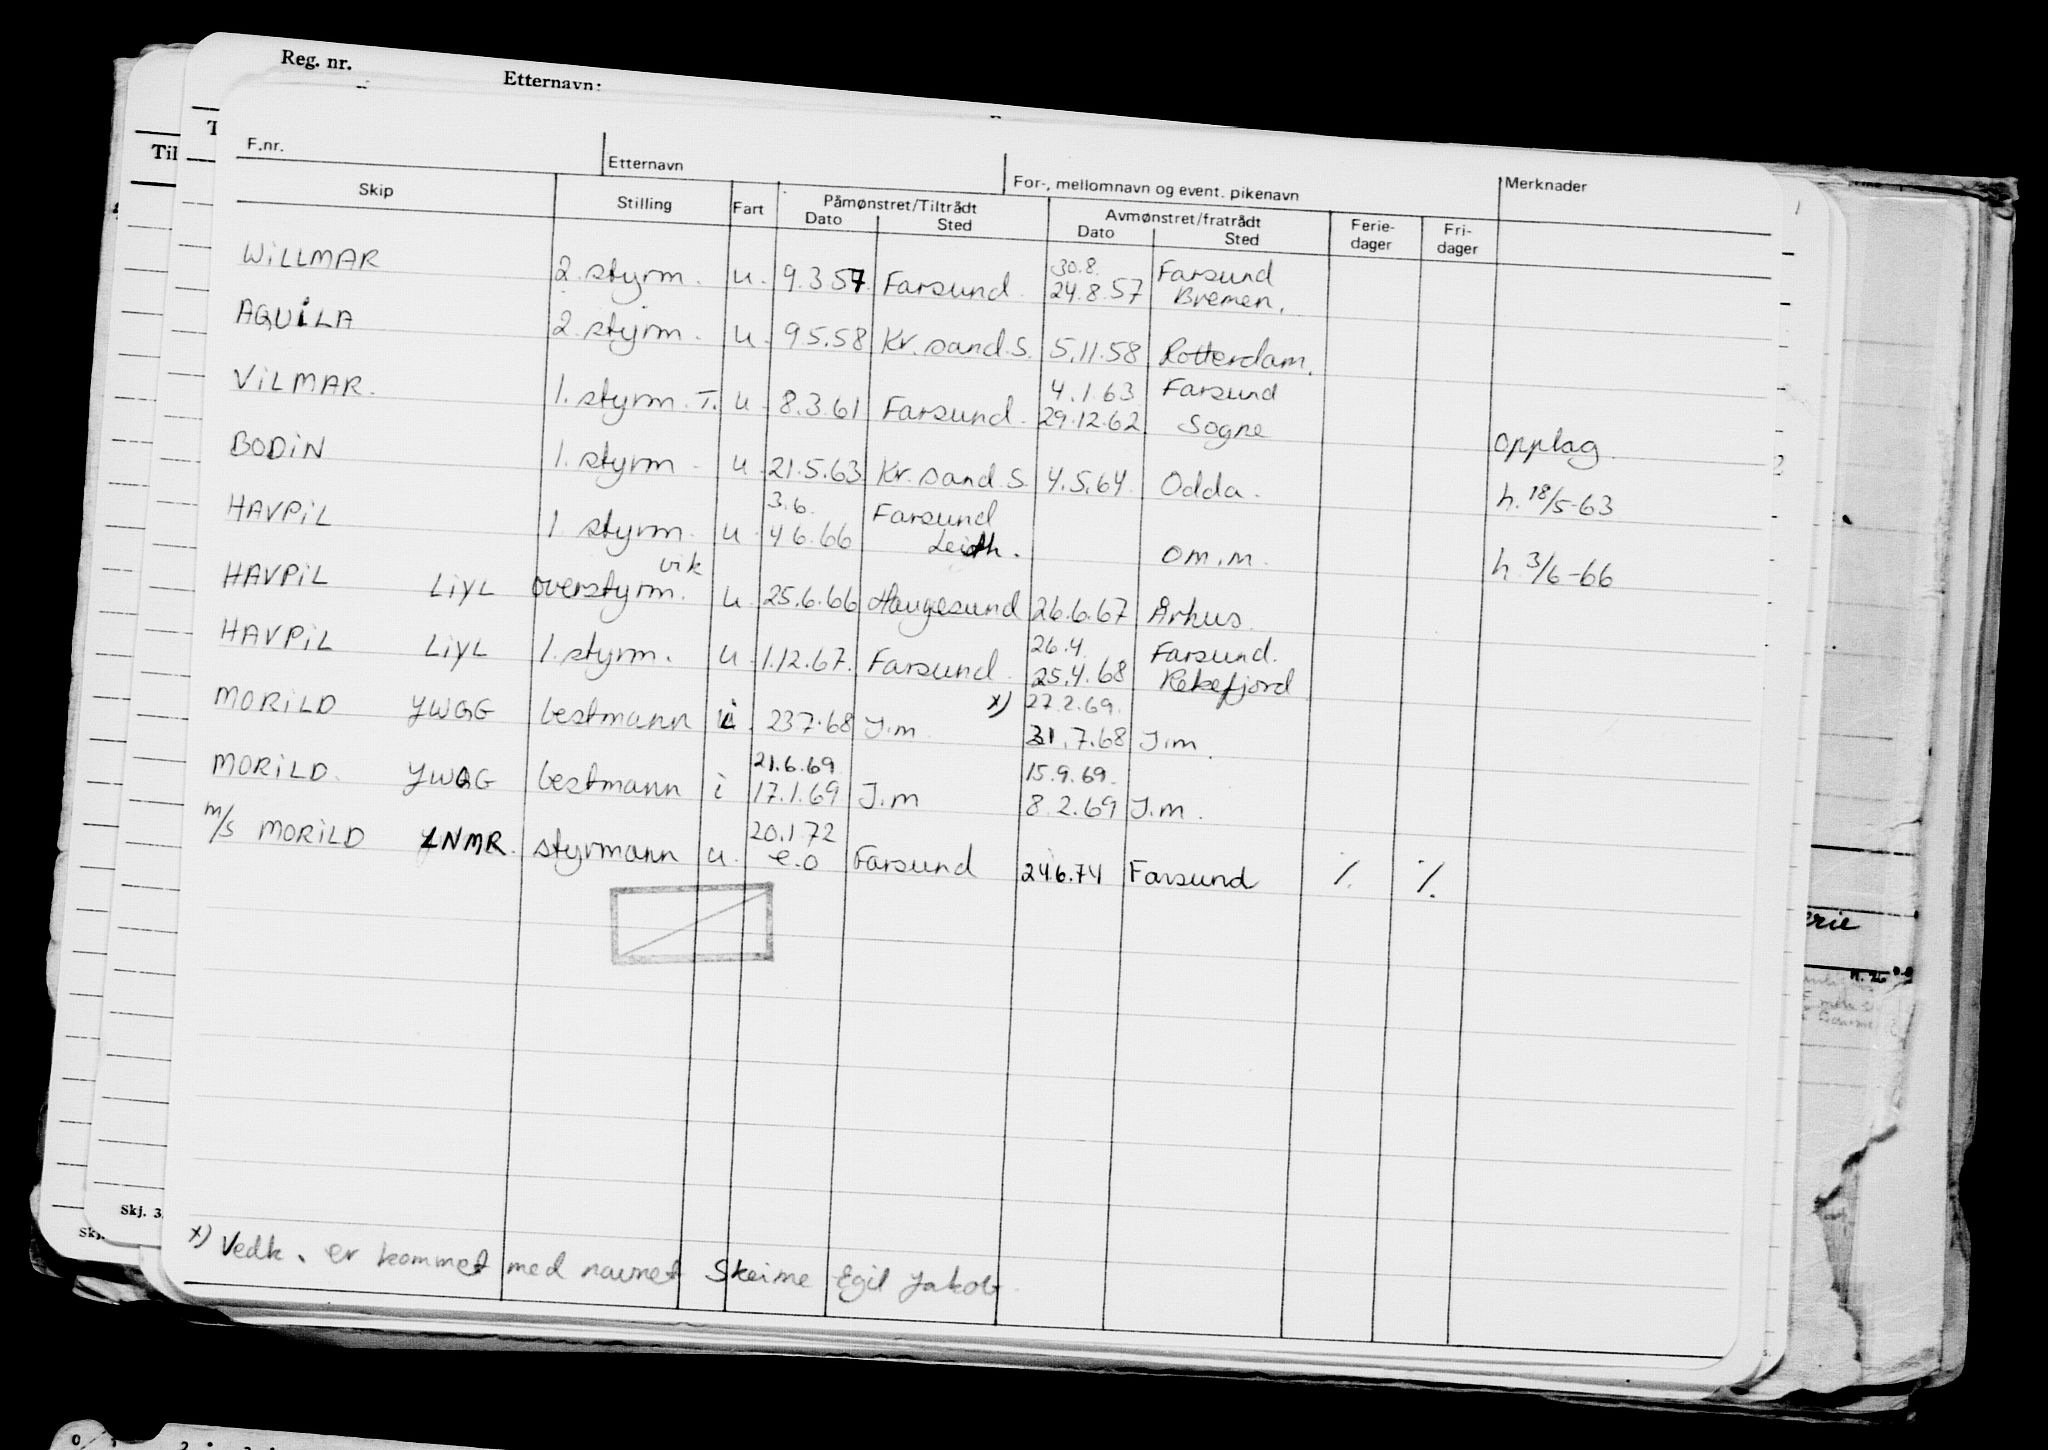 Reg. nr.
Etternavn:
Til
F.nr.
Etternavn
For-, mellomnavn og event. pikenavn
Merknader
Skip
Stilling
Fart
Påmønstret/Tiltrådt
Dato
Sted
Avmønstret/fratrådt
Dato
Sted
Ferie-
dager
Fri-
dager
30.8. Farsund
WILLMAR 2. styrm. u. 9.3.57 Farsund. 24.8.57 Bremen.
AQUILA 2. styrm. u. 9.5.58 Kr. sand. S. 5.11.58 Rotterdam.
4.1.63 Farsund
VILMAR. 1. styrm. T. u. 8.3.61 Farsund. 29.12.62 Sogne opplag.
BODIN 1. styrm. u. 21.5.63 Kr. sand. S. 4.5.64. Odda. h. 18/5-63
3.6. Farsund
HAVPIL 1. styrm. u. 4.6.66 Leith. om.m. h. 3/6-66
vik
HAVPIL LIYL overstyrm. u. 25.6.66 Haugesund 26.6.67 Århus.
26.4. Farsund.
HAVPIL LIYL 1. styrm. u. 1.12.67. Farsund. 25.4.68 Rekefjord
x) 27.2.69.
MORILD YWGG bestmann i. 23.7.68 J.m. 31.7.68 J.m.
21.6.69. 15.9.69.
MORILD. YWGG bestmann i 17.1.69 J.m 8.2.69 J.m.
20.1.72
m/s MORILD LNMR. styrmann u. e.o Farsund 24.6.74 Farsund ٪. ٪.
x) Vedk. er kommet med navnet Skeime Egil Jakob.
Skj. 3.
Skj.
erie